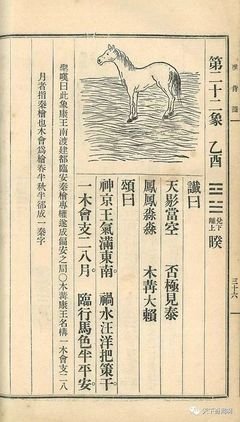 第二十二象 乙酉 兌下離上 睽
讖曰
天影當空 否極見泰
鳳鳳淼淼 木冓大賴
頌曰
神京王氣滿東南 禍水汪洋把策干
一木會支二八月 臨行馬色半平安
聖嘆曰此象康王南渡建都臨安秦檜專權遂成偏安之局〇木冓康王名構一木會支二八
月者指秦檜也木會為檜春半秋半郤成一秦字
三十六